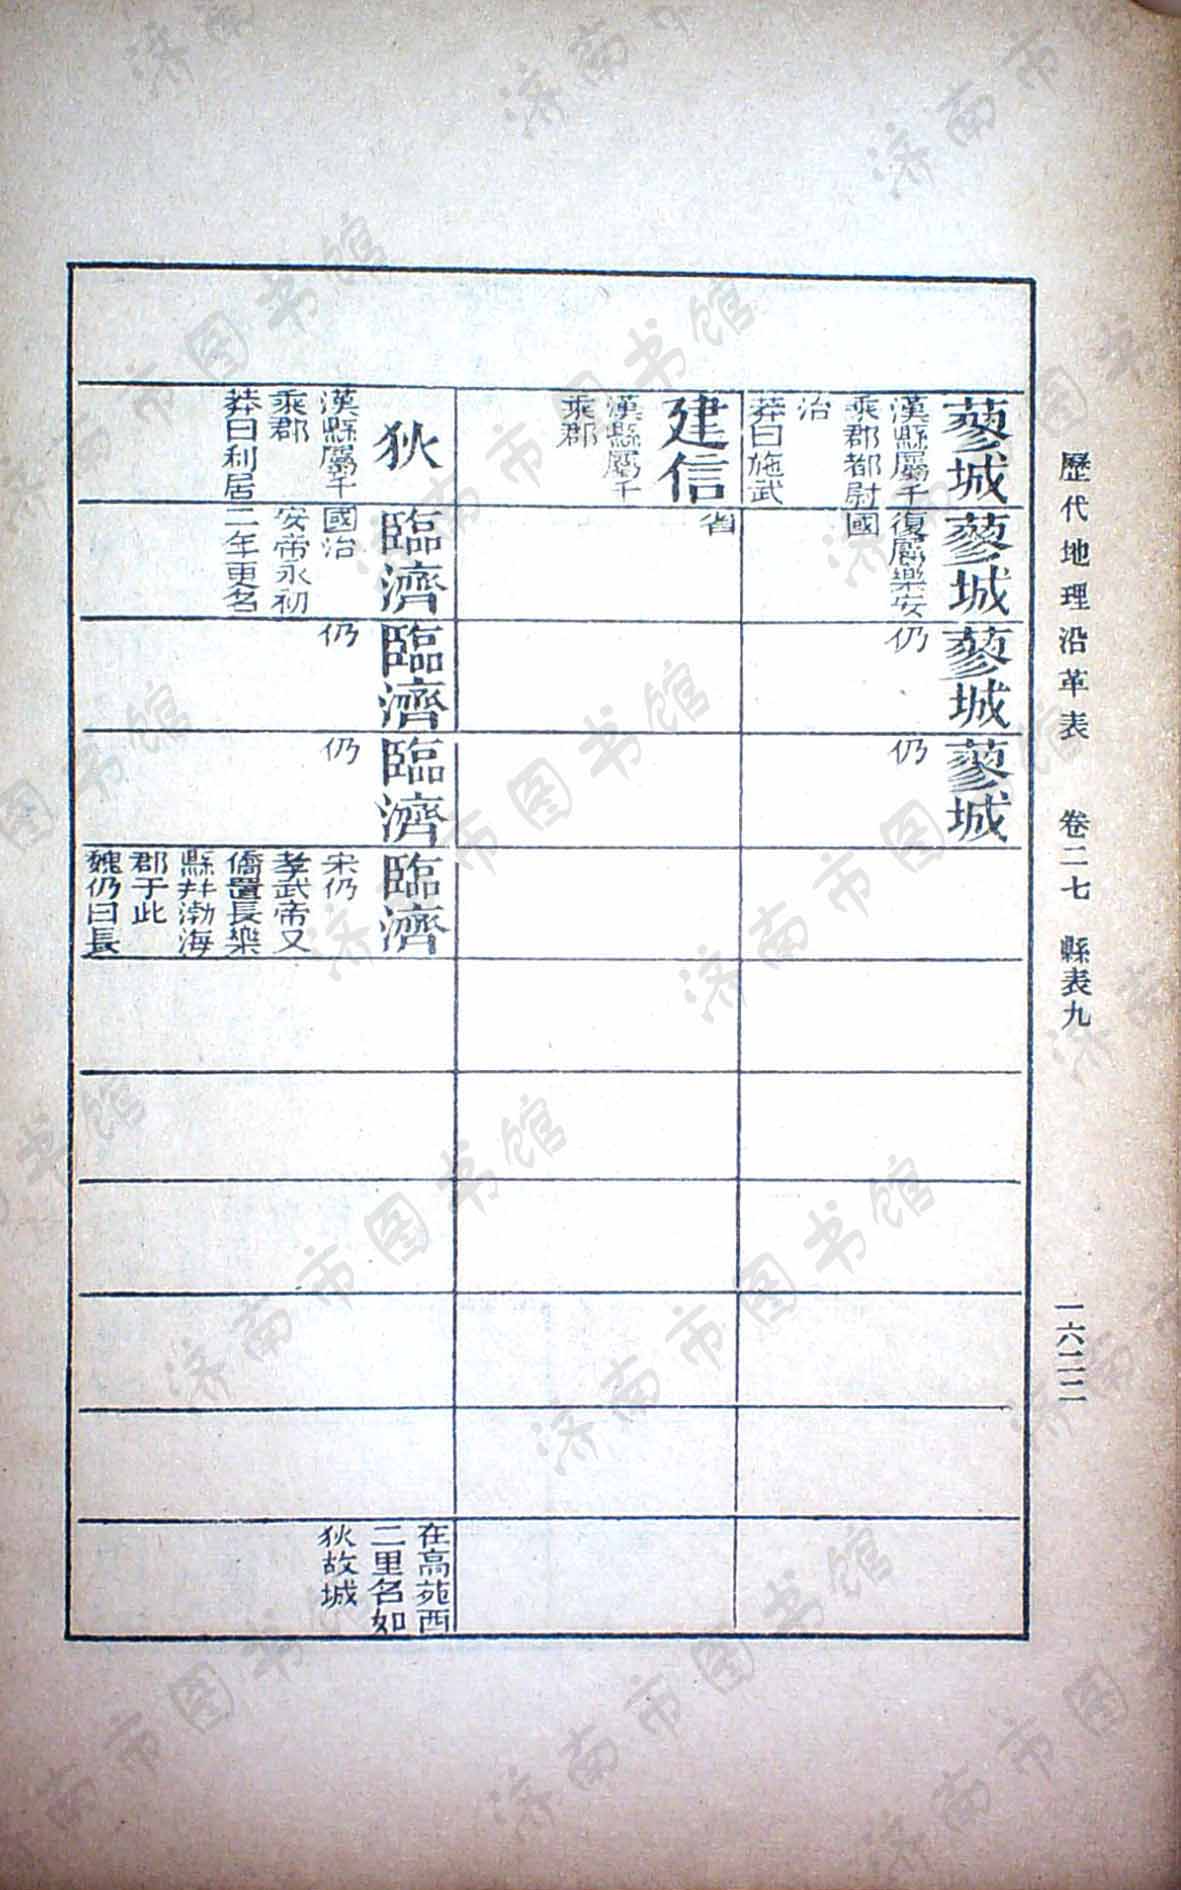 歷代地理沿革表 卷二七 縣表九 一六二二
蓼城
漢縣屬千
乘郡都尉
治
莽曰施武
蓼城
復屬樂安
國
蓼城
仍
蓼城
仍
建信
漢縣屬千
乘郡
省
狄
漢縣屬千
乘郡
莽曰利居
臨濟
國治
安帝永初
二年更名
臨濟
仍
臨濟
仍
臨濟
宋仍
孝武帝又
僑置長樂
縣幷渤海
郡于此
魏仍曰長
在高苑西
二里名如
狄故城
济南市图书馆